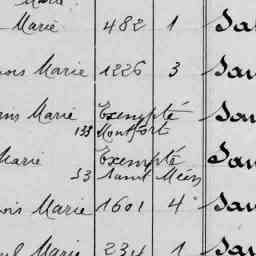 Marie 482 1 Sa
ois Marie 1226 3 Sau
Marie Exempté Sau
133 Montfort
Marie Exempté Sau
53 Saint Méen
ois Marie 1601 4 Sau
Marie 234 1 Sau